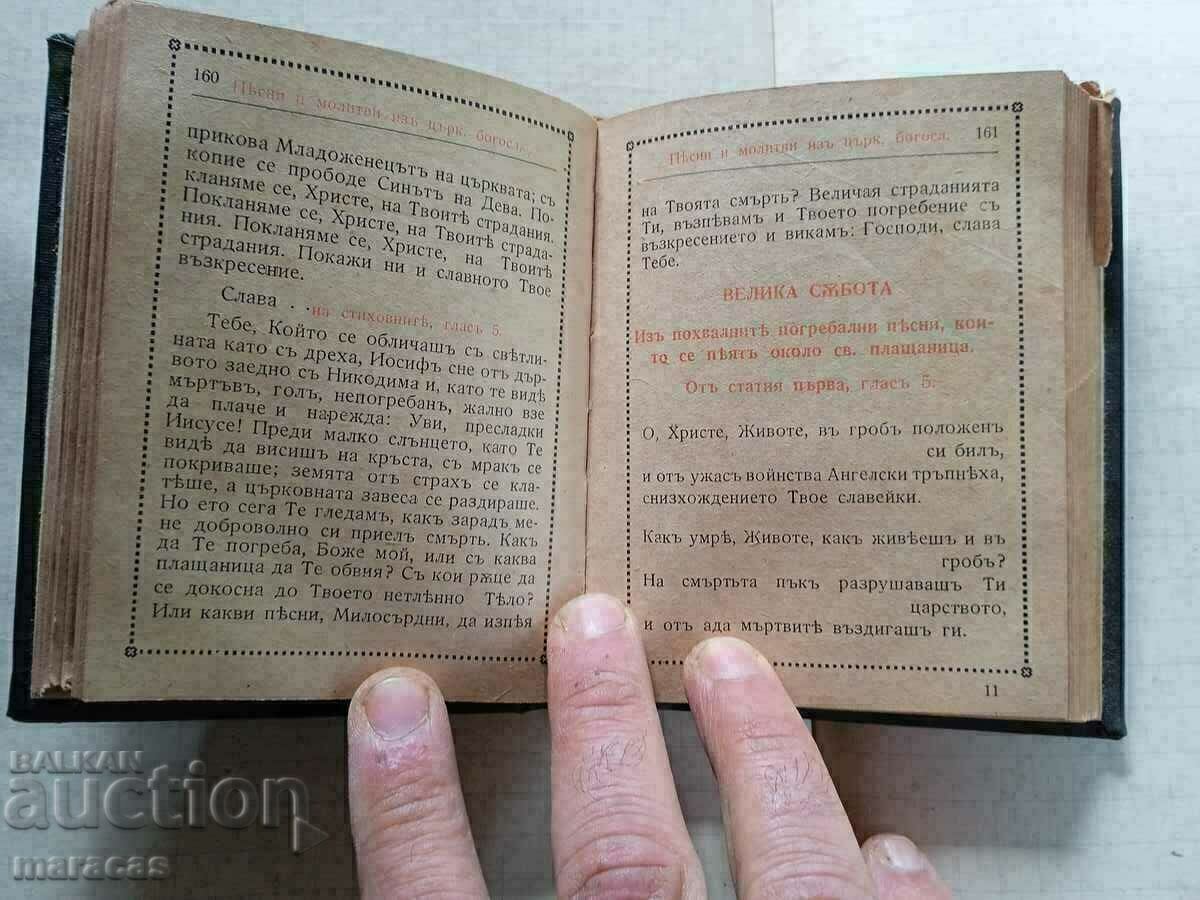 160
Пѣсни и молитви изъ църк. богосл.
прикова Младоженецътъ на църквата; съ
копие се прободе Синътъ на Дева. По-
кланяме се, Христе, на Твоитѣ страдания.
Покланяме се, Христе, на Твоитѣ страда-
ния. Покланяме се, Христе, на Твоитѣ
страдания. Покажи ни и славното Твое
възкресение.
Слава . .
на стиховнитѣ, гласъ 5.
Тебе, Който се обличашъ съ свѣтли-
ната като съ дреха, Иосифъ сне отъ дър-
вото заедно съ Никодима и, като те видѣ
мъртъвъ, голъ, непогребанъ, жално взе
да плаче и нарежда: Уви, пресладки
Иисусе! Преди малко слънцето, като Те
видѣ да висишъ на кръста, съ мракъ се
покриваше; земята отъ страхъ се кла-
тѣше, а църковната завеса се раздираше.
Но ето сега Те гледамъ, какъ зарадъ ме-
не доброволно си приелъ смърть. Какъ
да Те погреба, Боже мой, или съ каква
плащаница да Те обвия? Съ кои рѫце да
се докосна до Твоето нетлѣнно Тѣло?
Или какви пѣсни, Милосърдни, да изпѣя
Пѣсни и молитви изъ църк. богосл.
161
на Твоята смърть? Величая страданията
Ти, възпѣвамъ и Твоето погребение съ
възкресението и викамъ: Господи, слава
Тебе.
ВЕЛИКА СѪБОТА
Изъ похвалнитѣ погребални пѣсни, кои-
то се пѣятъ около св. плащаница.
Отъ статия първа, гласъ 5.
О, Христе, Животе, въ гробъ положенъ
си билъ,
и отъ ужасъ войнства Ангелски тръпнѣха,
снизхождението Твое славейки.
Какъ умрѣ, Животе, какъ живѣешъ и въ
гробъ?
На смъртьта пъкъ разрушавашъ Ти
царството,
и отъ ада мъртвитѣ въздигашъ ги.
11
BALKAN
auction
maracas